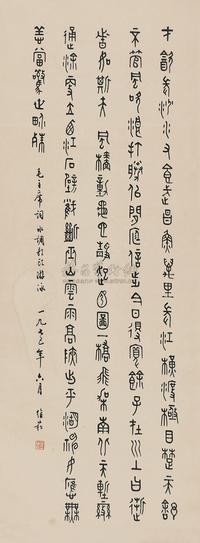 才飲長沙水又食武昌魚萬里長江橫渡極目楚天舒
不管風吹浪打勝似閒庭信步今日得寬餘子在川上曰逝
者如斯夫風檣動龜蛇靜起宏圖一橋飛架南北天塹變
通途更立西江石壁截斷巫山雲雨高峽出平湖神女應無
恙當驚世界殊 毛主席詞水調歌頭游泳 一九七三年六月